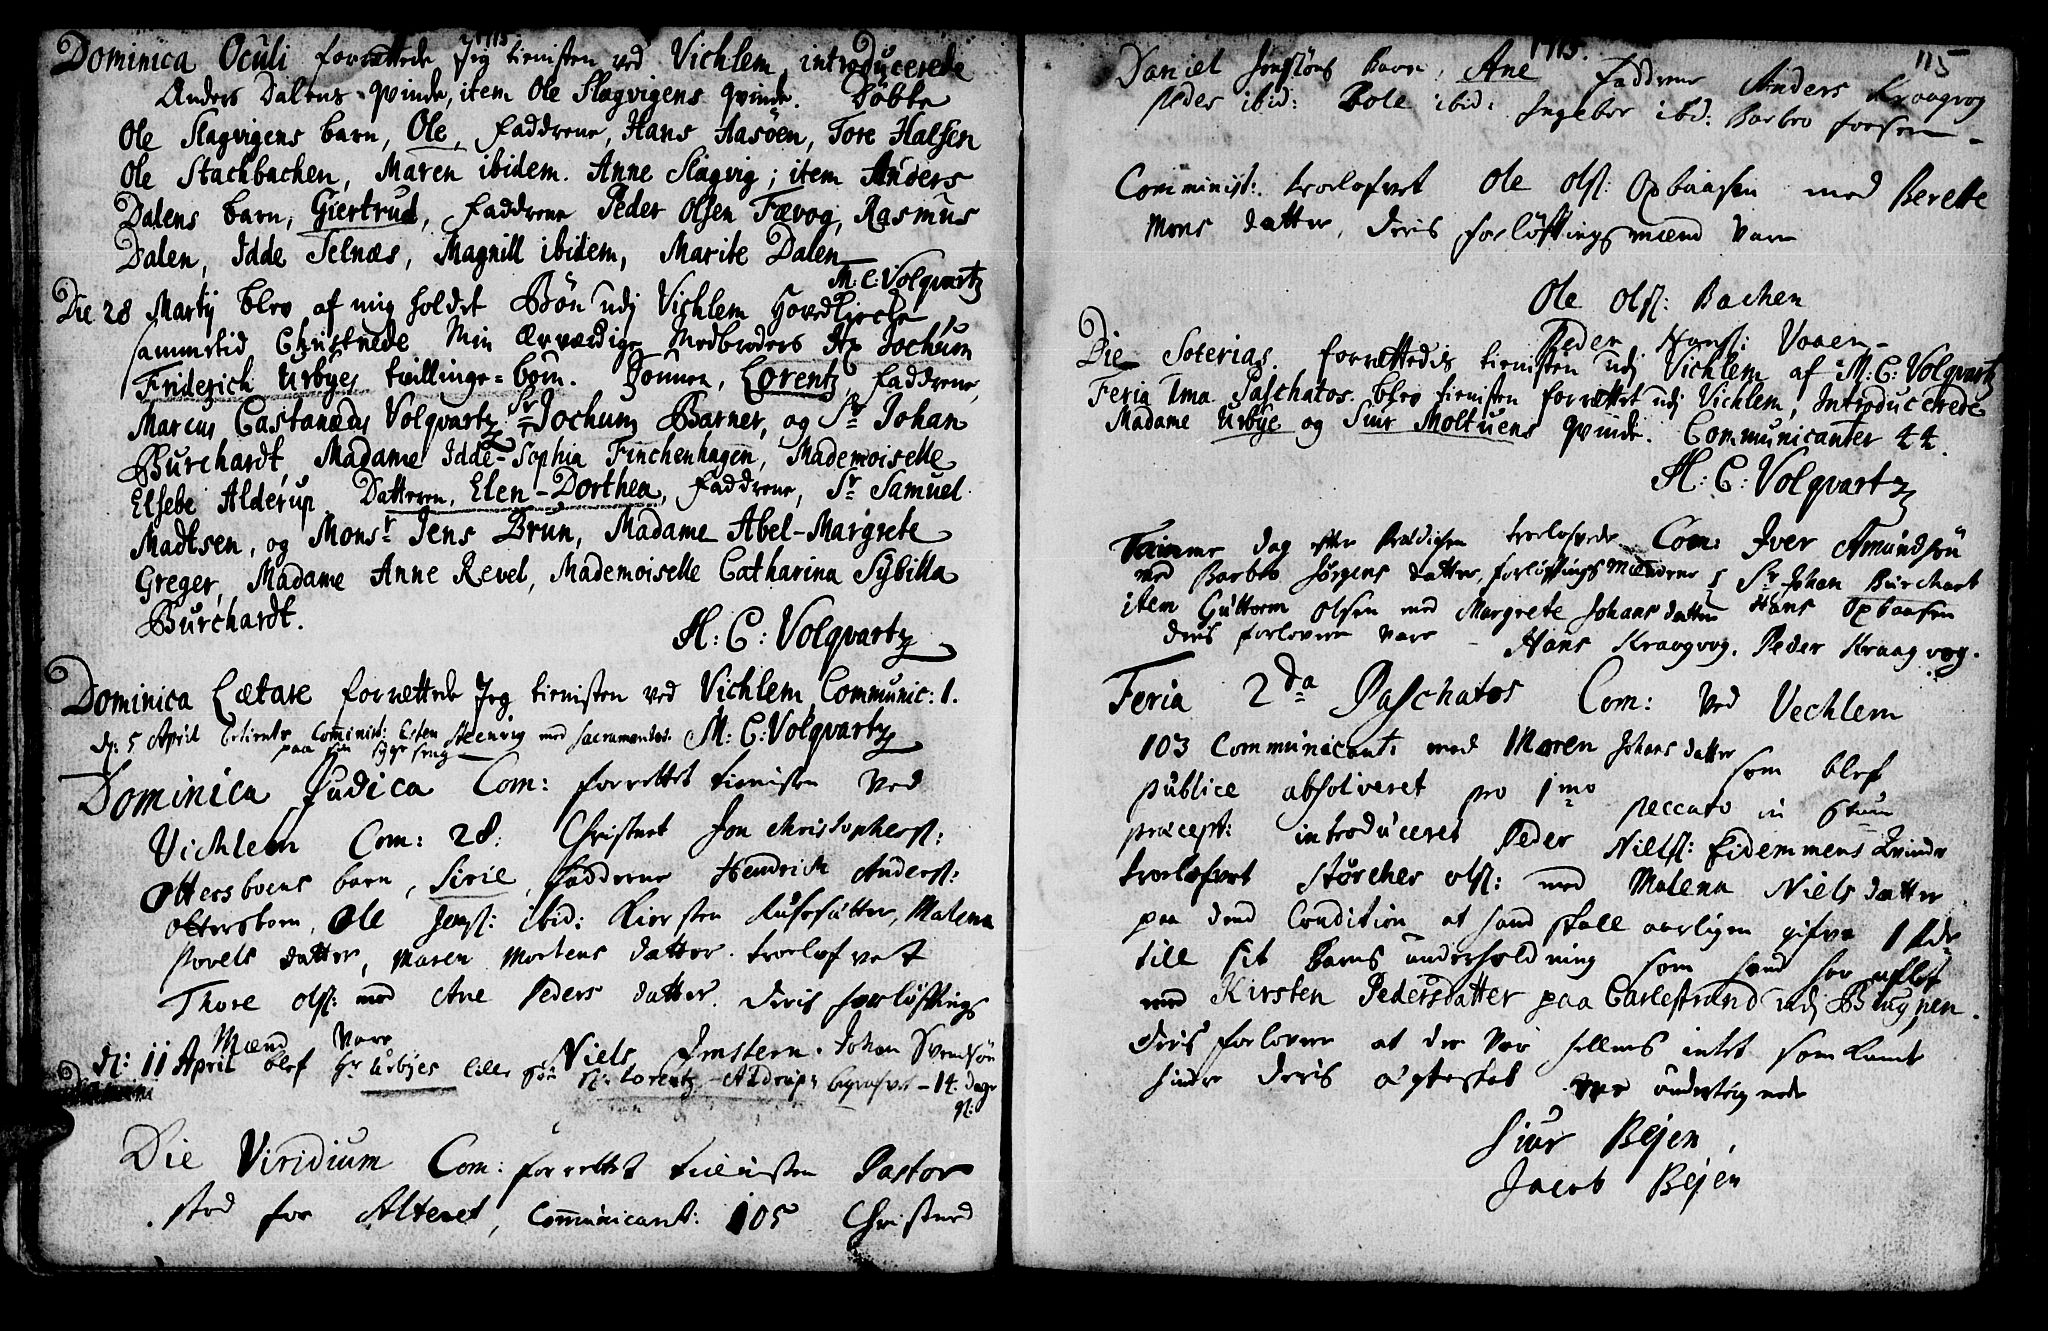 1715
Dominica Oculi forrættede Jeg tienisten ved Vichlem, introducerede
Anders Dalens qvinde, item Ole Slagvigens qvinde. Döbte
Ole Slagvigens barn, Ole, Faddrene, Hans Aasöen, Tore Halsen
Ole Stachbachen, Maren ibidem. Anne Slagvig; item Anders
Dalens barn, Giertrud, Faddrene Peder Olsen Fævog, Rasmus
Dalen, Idde Selnæs, Magnill ibidem, Marite Dalen
M: C: Volqvartz
Die 28 Martij blev af mig holdet Bön udj Vichlem Hovedkircke,
sammetid Christnede Min ærværdige Medbroders Hr Jochum
Friderich Urbyes tvillinge=börn. Sönnen, Lorentz, Faddrene,
Marcus Castanæus Volqvartz, Sr Jochum Barner, og Sr Johan
Burchardt, Madame Idde-Sophia Finchenhagen, Mademoiselle
Elsebe Alderup. Datteren, Elen-Dorthea, Faddrene, Sr Samuel
Madtsen, og Monsr Jens Brun, Madame Abel-Margrete
Greger, Madame Anne Revel, Mademoiselle Catharina Sybilla
Burchardt.
M: C: Volqvartz
Dominica Lætare forrættede Jeg tienisten ved Vichlem, Communic: 1.
M: C: Volqvartz
d: 5 April betiente Comminist: Esten Steenvig med sacramentet
paa sin syge seng
Dominica Judica Com: forrettet tienisten ved
Vichlem Com: 28: Christnet Jon Christophers:
Ottersboens barn, Sirie, Faddrene Hendrich Anders:
Ottersboen, Ole Jens: ibid: Kiersten Husfutter, Malena
Povels datter, Maren Mortens datter. troelofvet
Thore ols: med Ane Peders datter. deris forlöftings
Mænd vare Niels Imstern. Johan Svendsön
d: 11 April blef Hr Urbyes lille Sön Hr Lorentz-Alderup begrafven - 14 dage
gl:
Die Viridium Com: forrettet tienisten Pastor
stod for Alteret, Communicant: 105 Christned
1715.
115
Daniel Jensöns Barn, Ane Faddrene Anders Kraagvog
Peder ibid: Bole ibid: Ingebor ibid: Barbro forsen
Comminist: troelofvet Ole Ols: Ophaasen med Berette
Mons datter, deris forlöftingsmænd vare
Ole Ols: Bachen
Peder Hans: Vaaen
Die Soterias forrættedis tienisten udj Vichlem af M: C: Volqvartz
Feria 1ma Paschatos blev tienisten forrættet udj Vichlem, Introducerede
Madame Urbye og Siur Moltuens qvinde. Communicanter 44.
M: C: Volqvartz
Samme dag efter Prædichen troelofvede Com: Iver Amundsön
med Barbro Jörgens datter, forlöftings mændene Sr Johan Burchart
Hans Ophaasen
item Guttorm Olsen med Margrete Johans datter
deris forlovere vare Hans Kraagvog, Peder Kraagvog.
Feria 2da Paschatos Com: ved Vechlem
103 Communicant: med Maren Johans datter som blef
publice absolveret pro 1mo peccato in 6tum
præcept: introduceret Peder Niels: Eidemmens kvinde
troelofvet Störcher ols: med Malena Niels datter
paa dend Condition at hand skall aarligen gifve 1 Rdr
till sit Barns underholdning som hand har aflet
med Kirsten Pedersdatter paa Carlestrand udj Bugnen.
deris forlovere at der var hellers intet som kunde
hindre deris ægteskab var undertegnede
Siur Bejen,
Jacob Bejen